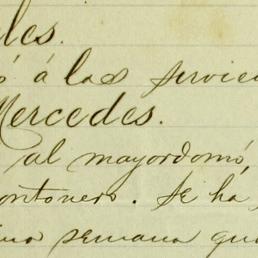 les.
ó á las servicie
Mercedes.
al mayordomó
ontonero. Se ha
semana que